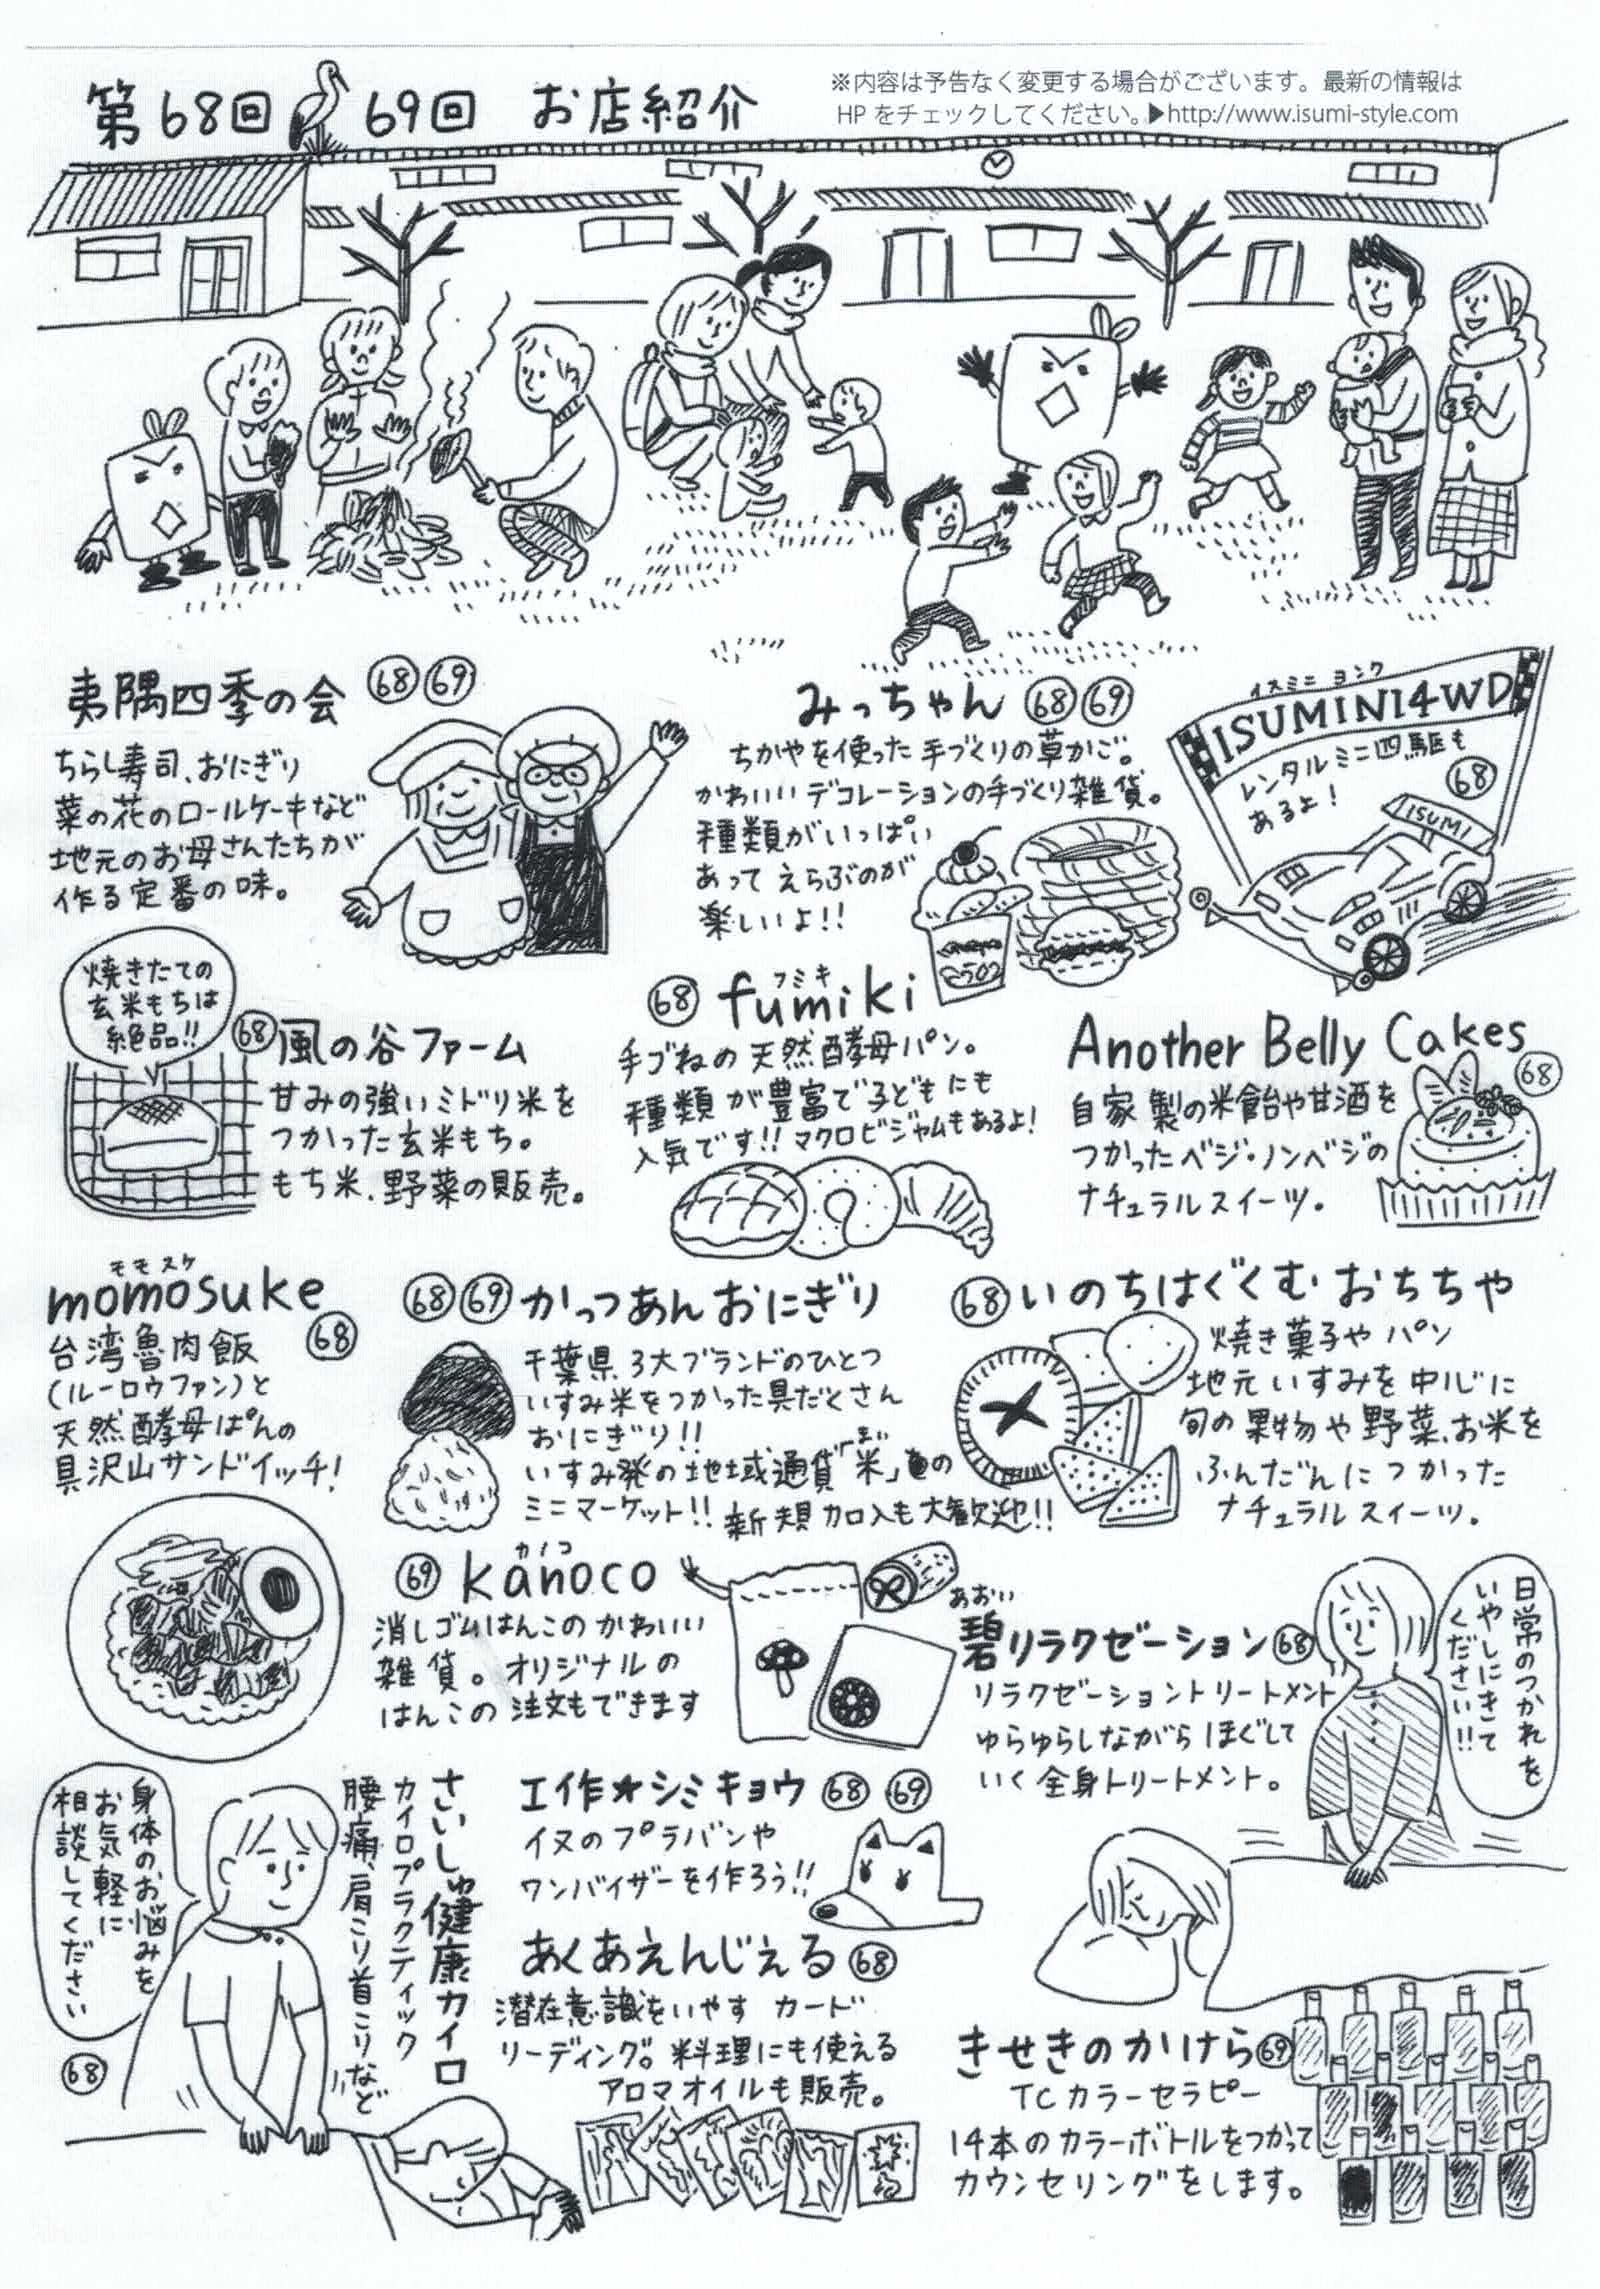 第68回 69回 お店紹介
※内容は予告なく変更する場合がございます。最新の情報は
HPをチェックしてください。▶http://www.isumi-style.com
夷隅四季の会 68 69
ちらし寿司、おにぎり
菜の花のロールケーキなど
地元のお母さんたちが
作る定番の味。
みっちゃん 68 69
ちがやを使った手づくりの草かご。
かわいいデコレーションの手づくり雑貨。
種類がいっぱい
あってえらぶのが
楽しいよ!!
イスミニ ヨンク
ISUMINI4WD
レンタルミニ四駆も
あるよ!
68
ISUMI
焼きたての
玄米もちは
絶品!!
68 風の谷ファーム
甘みの強いミドリ米を
つかった玄米もち。
もち米、野菜の販売。
フミキ
68 fumiki
手ごねの天然酵母パン。
種類が豊富で子どもにも
人気です!! マクロビジャムもあるよ!
Another Belly Cakes
68
自家製の米飴や甘酒を
つかったベジ・ノンベジの
ナチュラルスイーツ。
モモスケ
momosuke
68
台湾魯肉飯
(ルーロウファン)と
天然酵母ぱんの
具沢山サンドイッチ!
68 69 かっつあんおにぎり
千葉県3大ブランドのひとつ
いすみ米をつかった具だくさん
おにぎり!!
まい
いすみ発の地域通貨「米」の
ミニマーケット!! 新規加入も大歓迎!!
68 いのちはぐくむ おちちや
焼き菓子やパン
地元いすみを中心に
旬の果物や野菜、お米を
ふんだんにつかった
ナチュラルスイーツ。
カノコ
69 kanoco
消しゴムはんこのかわいい
雑貨。オリジナルの
はんこの注文もできます
あおい
碧リラクゼーション 68
リラクゼーショントリートメント
ゆらゆらしながらほぐして
いく全身トリートメント。
日常のつかれを
いやしにきて
ください!!
身体のお悩みを
お気軽に
相談してください
68
さいしゅ健康カイロ
カイロプラクティック
腰痛、肩こり首こりなど
工作★シミキョウ 68 69
イヌのプラバンや
ワンバイザーを作ろう!!
あくあえんじぇる 68
潜在意識をいやす カード
リーディング。料理にも使える
アロマオイルも販売。
きせきのかけら 69
TCカラーセラピー
14本のカラーボトルをつかって
カウンセリングをします。